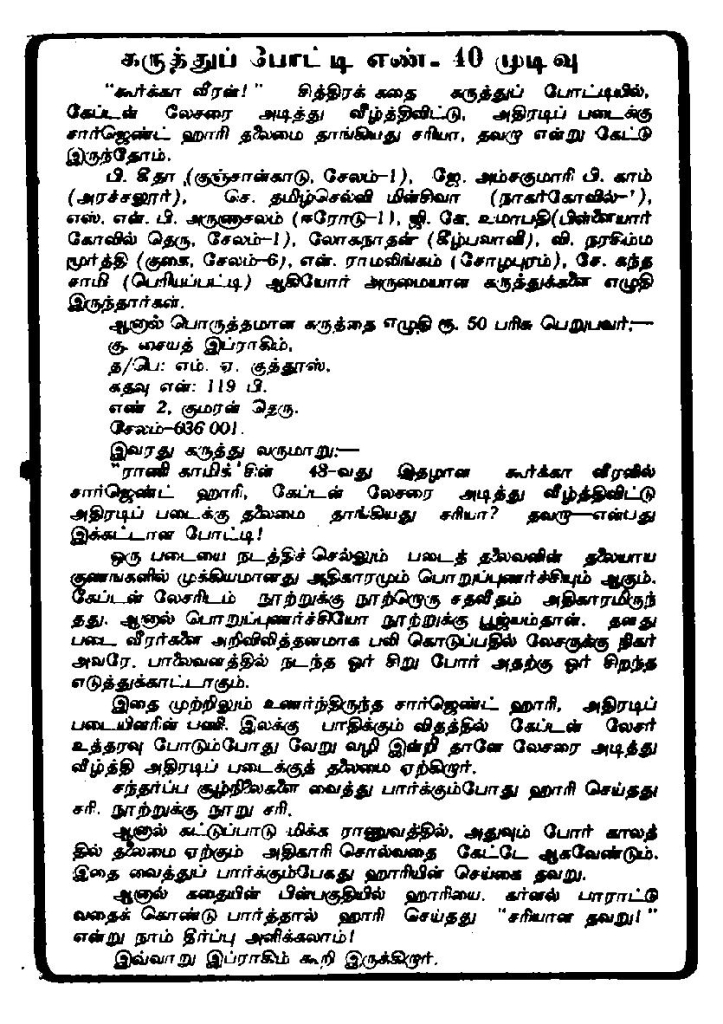 கருத்துப் போட்டி எண்- 40 முடிவு
"கூர்க்கா வீரன்!" சித்திரக் கதை கருத்துப் போட்டியில்,
கேப்டன் லேசரை அடித்து வீழ்த்திவிட்டு, அதிரடிப் படைக்கு
சார்ஜெண்ட் ஹாரி தலைமை தாங்கியது சரியா, தவறா என்று கேட்டு
இருந்தோம்.
பி. கீதா (குஞ்சான்காடு, சேலம்-1), ஜே. அம்சகுமாரி பி. காம்
(அரச்சலூர்), செ. தமிழ்செல்வி மின்சிவா (நாகர்கோவில்-'),
எஸ். என். பி. அருணாசலம் (ஈரோடு-1), ஜி. கே. உமாபதி(பிள்ளையார்
கோவில் தெரு, சேலம்-1), லோகநாதன் (கீழ்பவானி), வி. நரசிம்ம
மூர்த்தி (குகை, சேலம்-6), என். ராமலிங்கம் (சோழபுரம்), சே. கந்த
சாமி (பெரியப்பட்டி) ஆகியோர் அருமையான கருத்துக்களை எழுதி
இருந்தார்கள்.
ஆனால் பொருத்தமான கருத்தை எழுதி ரூ. 50 பரிசு பெறுபவர்:—
கு. சையத் இப்ராகிம்,
த/பெ: எம். ஏ. குத்தூஸ்,
கதவு எண்: 119 பி.
எண் 2, குமரன் தெரு.
சேலம்-636 001.
இவரது கருத்து வருமாறு:—
"ராணி காமிக்'சின் 48-வது இதழான கூர்க்கா வீரனில்
சார்ஜெண்ட் ஹாரி, கேப்டன் லேசரை அடித்து வீழ்த்திவிட்டு
அதிரடிப் படைக்கு தலைமை தாங்கியது சரியா? தவறா—என்பது
இக்கட்டான போட்டி!
ஒரு படையை நடத்திச் செல்லும் படைத் தலைவனின் தலையாய
குணங்களில் முக்கியமானது அதிகாரமும் பொறுப்புணர்ச்சியும் ஆகும்.
கேப்டன் லேசரிடம் நூற்றுக்கு நூற்றொரு சதவீதம் அதிகாரமிருந்
தது. ஆனால் பொறுப்புணர்ச்சியோ நூற்றுக்கு பூஜ்யம்தான். தனது
படை வீரர்களை அறிவிலித்தனமாக பலி கொடுப்பதில் லேசருக்கு நிகர்
அவரே. பாலைவனத்தில் நடந்த ஓர் சிறு போர் அதற்கு ஓர் சிறந்த
எடுத்துக்காட்டாகும்.
இதை முற்றிலும் உணர்ந்திருந்த சார்ஜெண்ட் ஹாரி, அதிரடிப்
படையினரின் பணி. இலக்கு பாதிக்கும் விதத்தில் கேப்டன் லேசர்
உத்தரவு போடும்போது வேறு வழி இன்றி தானே லேசரை அடித்து
வீழ்த்தி அதிரடிப் படைக்குத் தலைமை ஏற்கிறார்.
சந்தர்ப்ப சூழ்நிலைகளை வைத்து பார்க்கும்போது ஹாரி செய்தது
சரி. நூற்றுக்கு நூறு சரி.
ஆனால் கட்டுப்பாடு மிக்க ராணுவத்தில், அதுவும் போர் காலத்
தில் தலைமை ஏற்கும் அதிகாரி சொல்வதை கேட்டே ஆகவேண்டும்.
இதை வைத்துப் பார்க்கும்பேகது ஹாரியின் செய்கை தவறு.
ஆனால் கதையின் பின்பகுதியில் ஹாரியை. கர்னல் பாராட்டு
வதைக் கொண்டு பார்த்தால் ஹாரி செய்தது "சரியான தவறு!"
என்று நாம் தீர்ப்பு அளிக்கலாம்!
இவ்வாறு இப்ராகிம் கூறி இருக்கிறார்.